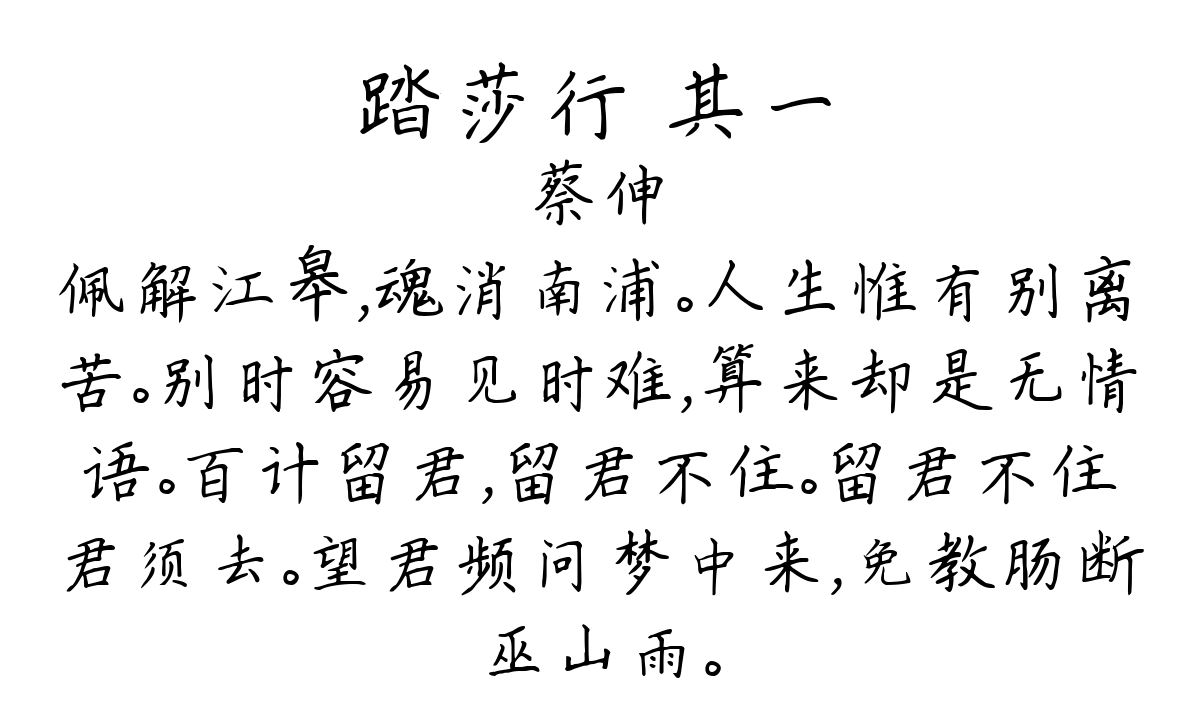 踏莎行 其一
蔡伸
佩解江皋,魂消南浦。人生惟有别离
苦。别时容易见时难,算来却是无情
语。百计留君,留君不住。留君不住
君须去。望君频问梦中来,免教肠断
巫山雨。